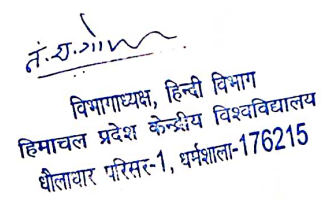 विभागाध्यक्ष, हिन्दी विभाग
हिमाचल प्रदेश केन्द्रीय विश्वविद्यालय
धौलाधार परिसर-1, धर्मशाला-176215